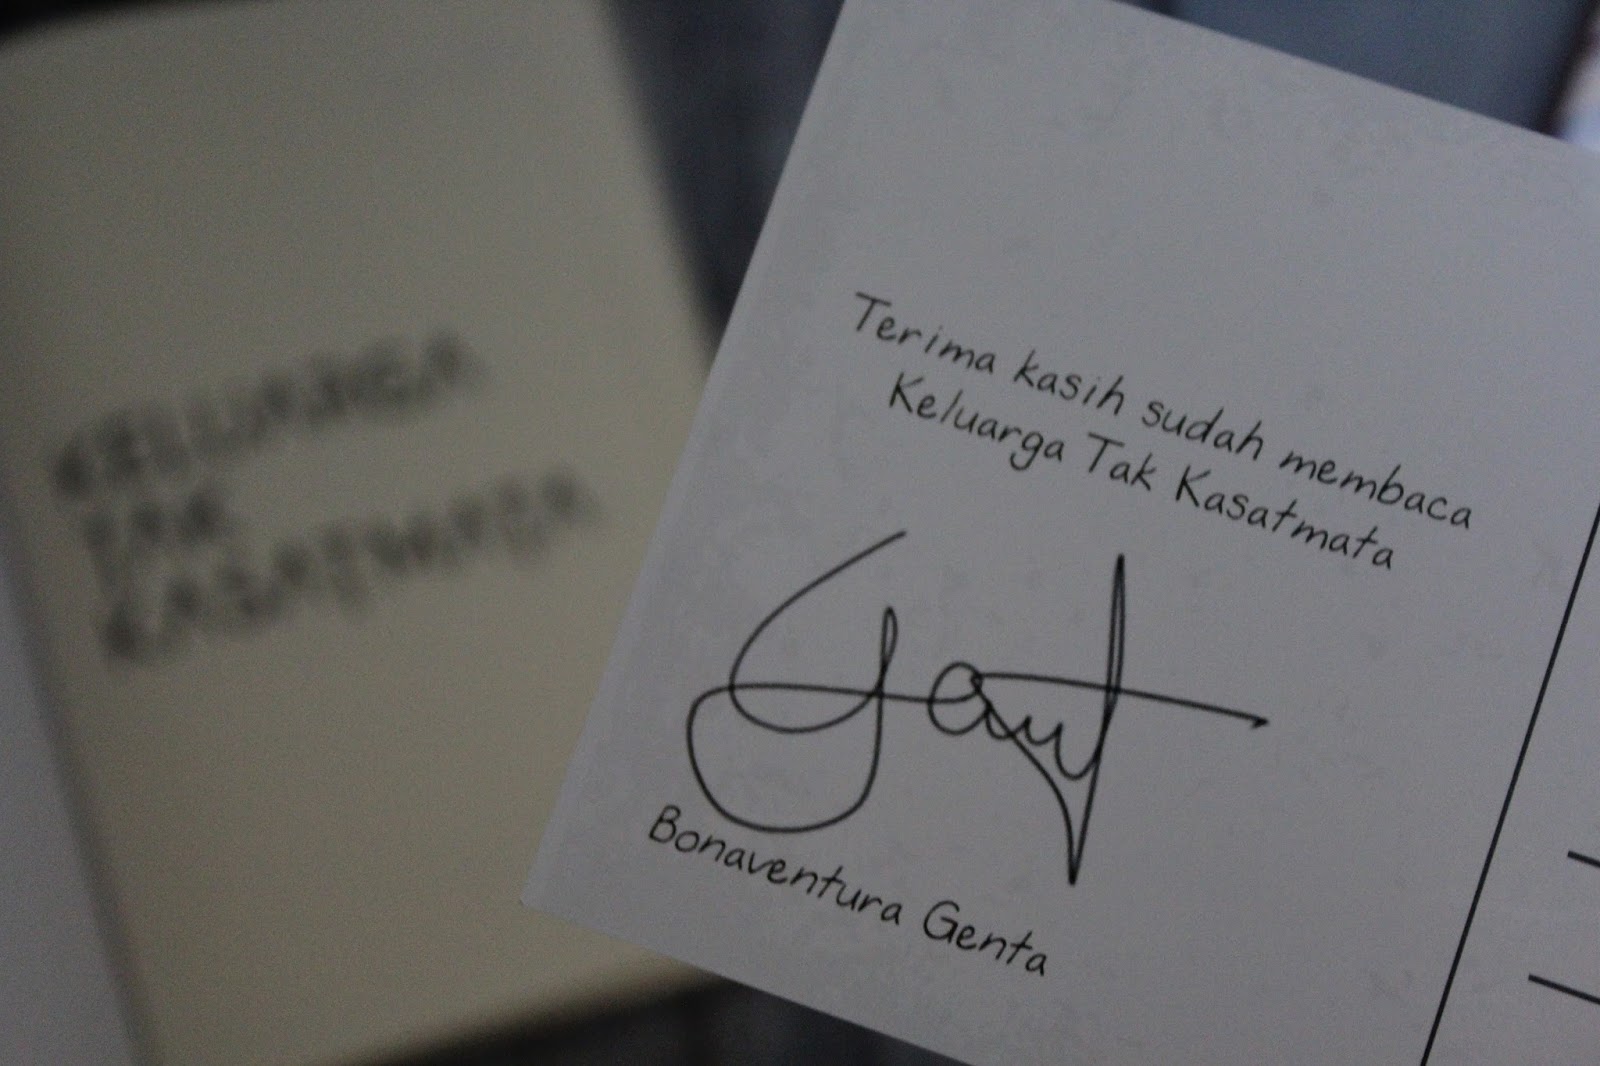 KELUARGA
TAK
KASATMATA
Terima kasih sudah membaca
Keluarga Tak Kasatmata
Bonaventura Genta